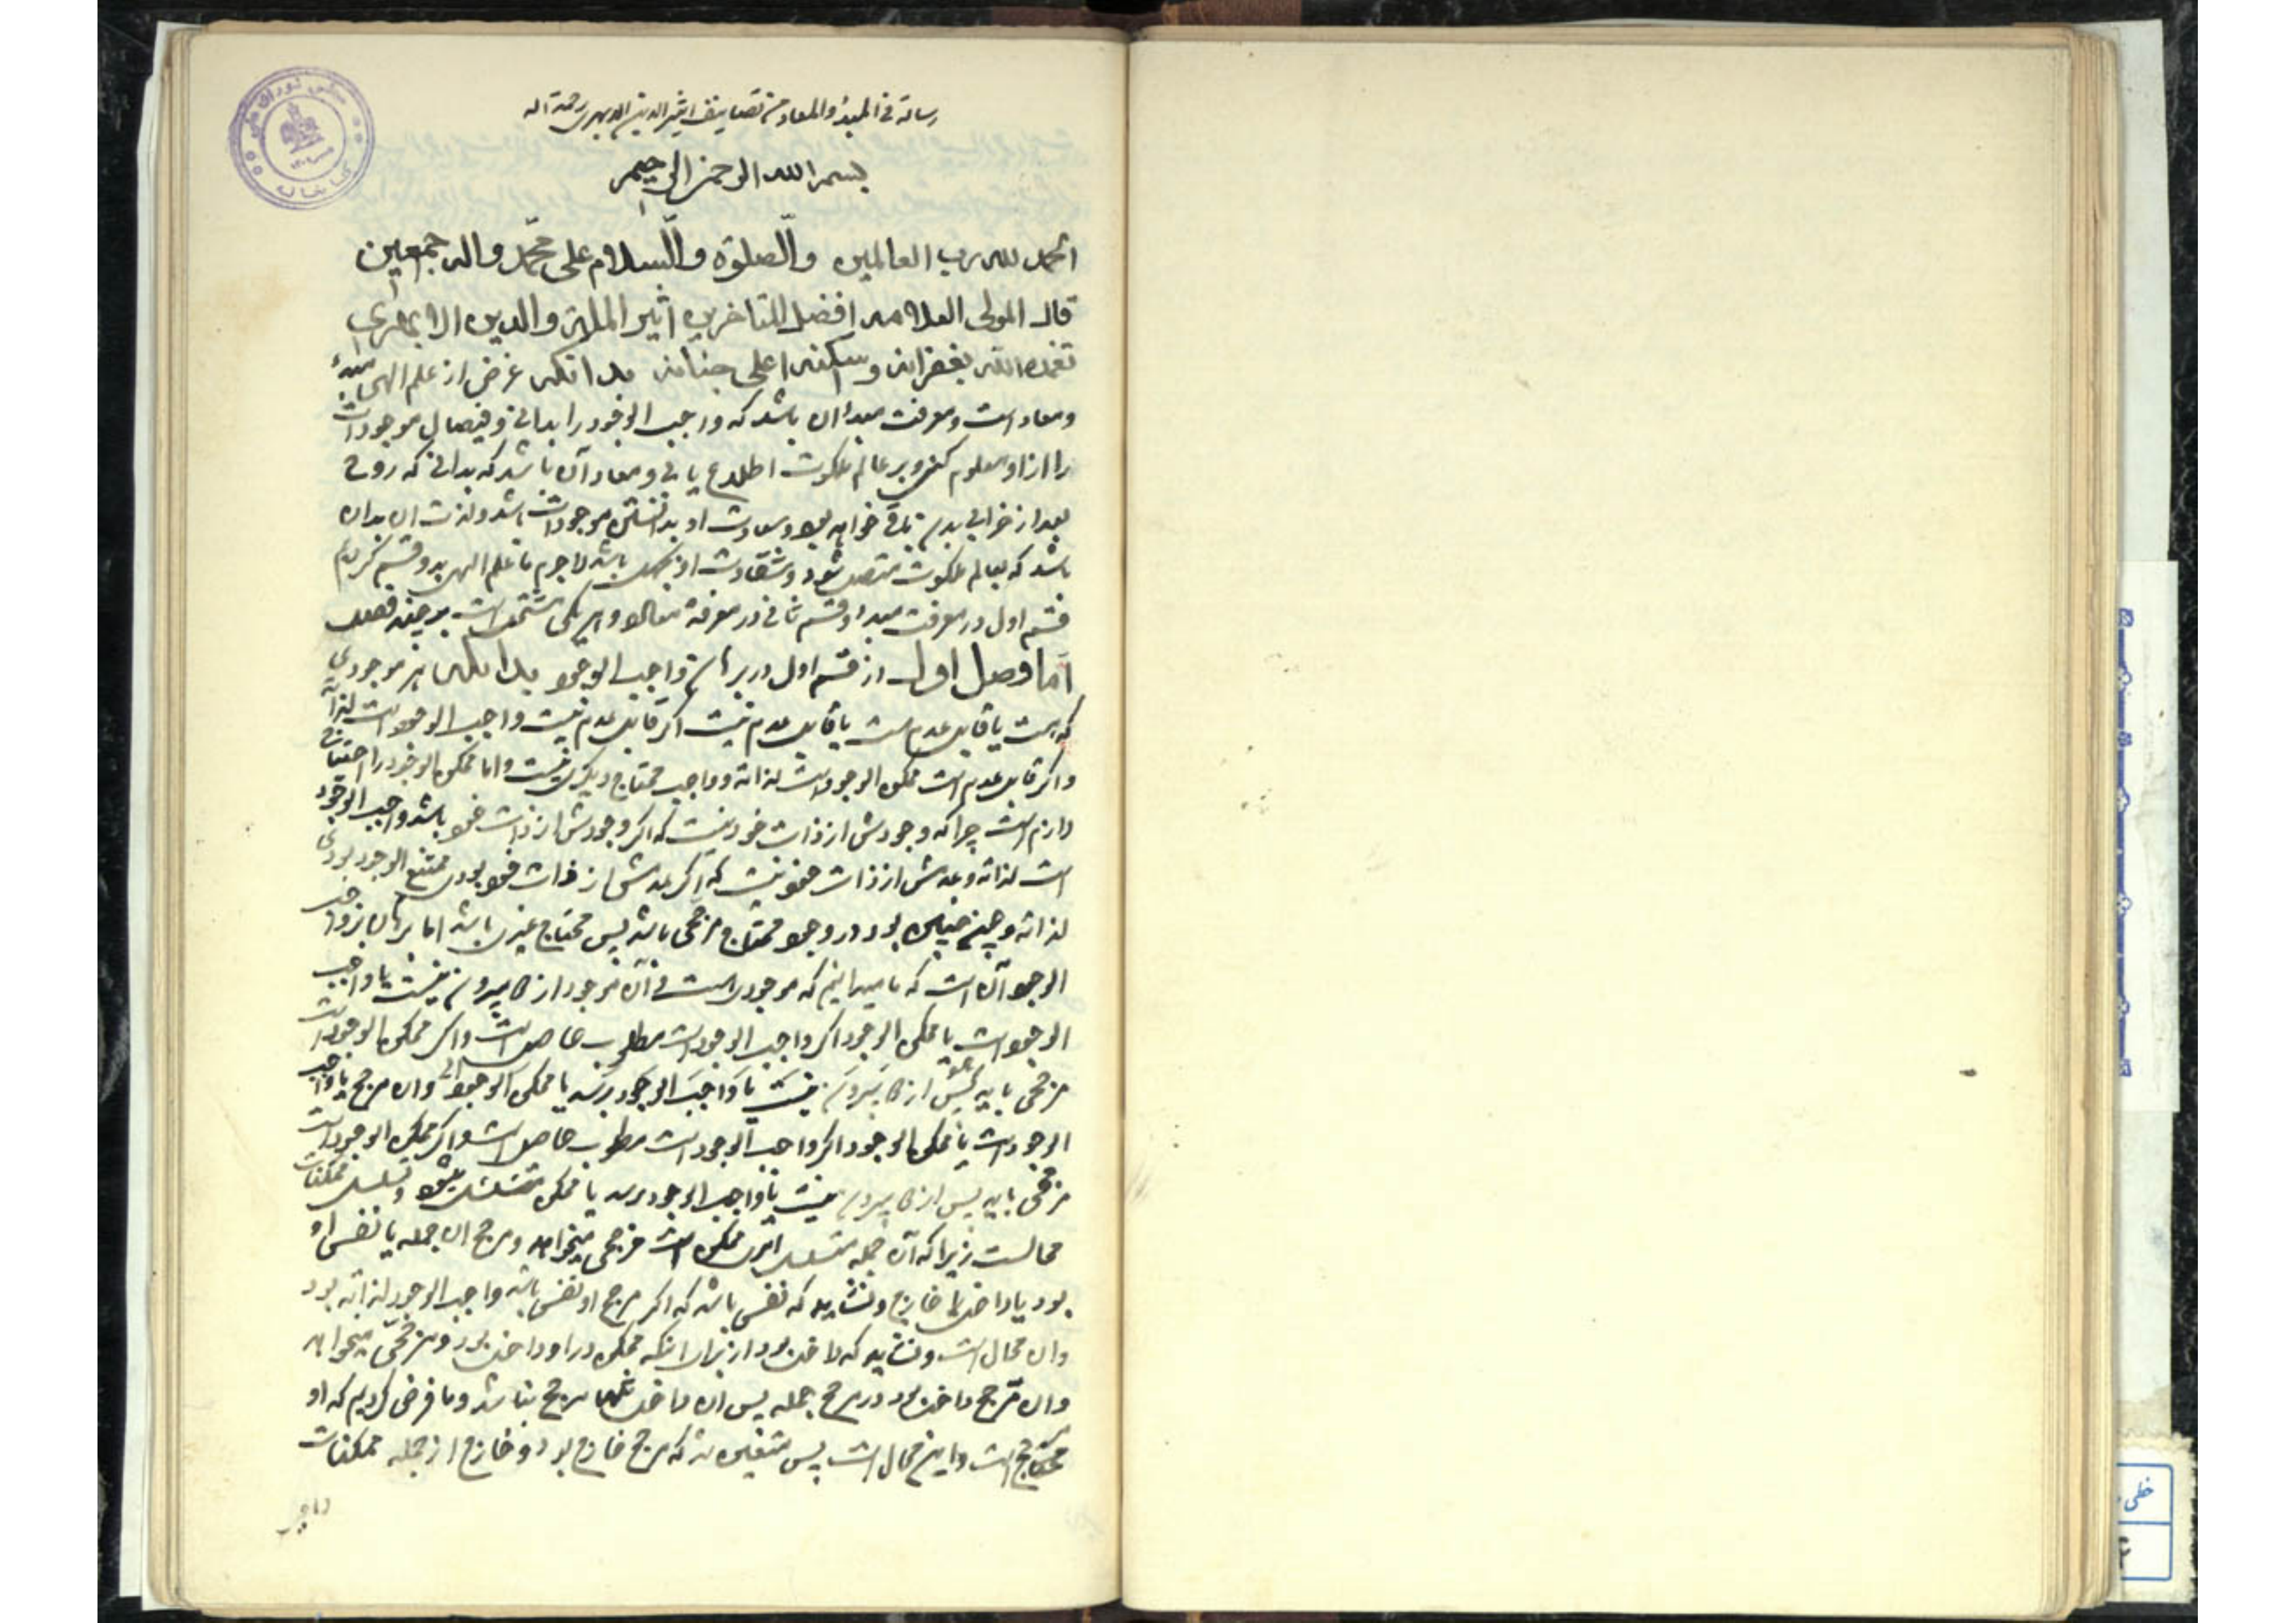 رسالة فی المبدأ والمعاد من تصانیف اثیر الدین الابهری رحمة الله
بسم الله الرحمن الرحیم
الحمد لله رب العالمین والصلوة والسلام علی محمد واله اجمعین
قال المولی العلامه افضل المتاخرین اثیر الملة والدین الابهری
تغمده الله بغفرانه واسکنه اعلی جنانه بدانکه غرض از علم الهی مبدأ
ومعاد است ومعرفت مبدا ان باشد که واجب الوجود را بدانی وفیضان موجودات
را از او معلوم کنی وبر عالم ملکوت اطلاع یابی ومعاد آن باشد که بدانی که روح
بعد از خرابی بدن باقی خواهد بود وسعادت او بدانستن موجودات باشد ولذت ان بدان
باشد که بعالم ملکوت متصل شود وشقاوت او بعکس باشد لاجرم ما علم الهی بدو قسم کردیم
قسم اول در معرفت مبدا وقسم ثانی در معرفة معاد وهر یکی مشتمل است بر چند فصل
اما فصل اول از قسم اول در برهان واجب الوجود بدانکه هر موجودی
که هست یا قابل عدم است یا قابل عدم نیست اگر قابل عدم نیست واجب الوجود است لذاته
واگر قابل عدم است ممکن الوجود است لذاته وواجب محتاج دیگری نیست واما ممکن الوجود را احتیاج
لازم است چرا که وجودش از ذات خود نیست که اگر وجودش از ذات خود باشد واجب الوجود
است لذاته وعدمش از ذات خود نیست که اگر عدمش از ذات خود بودی ممتنع الوجود بودی
لذاته وچون چنین بود در وجود محتاج مرجحی باشد پس محتاج غیری باشد اما برهان بر واجب
الوجود آن است که ما میدانیم که موجودی هست وآن موجود از دو بیرون نیست یا واجب
الوجود است یا ممکن الوجود اگر واجب الوجود است مطلوب حاصل است واگر ممکن الوجود است
مرجحی باید پس از دو بیرون نیست یا واجب الوجود برسد یا ممکن الوجود وان مرجح یا واجب
الوجود است یا ممکن الوجود اگر واجب الوجود است مطلوب حاصل است واگر ممکن الوجود است
مرجحی باید پس از دو بیرون نیست یا واجب الوجود برسد یا ممکن متسلسل شود وتسلسل ممکنات
محالست زیرا که آن جمله متسلسل ممکن است مرجحی میخواهد ومرجح ان جمله یا نفس او
بود یا داخل یا خارج ونشاید که نفس باشد که اگر مرجح او نفس باشد واجب الوجود لذاته بود
وان محال است ونشاید که داخل بود از برای انکه ممکن در او داخل بود ومرجحی میخواهد
وان مرجح داخل بود در مرجح جمله پس ان داخل مرجح نباشد وما فرض کردیم که او
مرجح است واین محال است پس متعین شد که مرجح خارج بود وخارج از جمله ممکنات
واجب